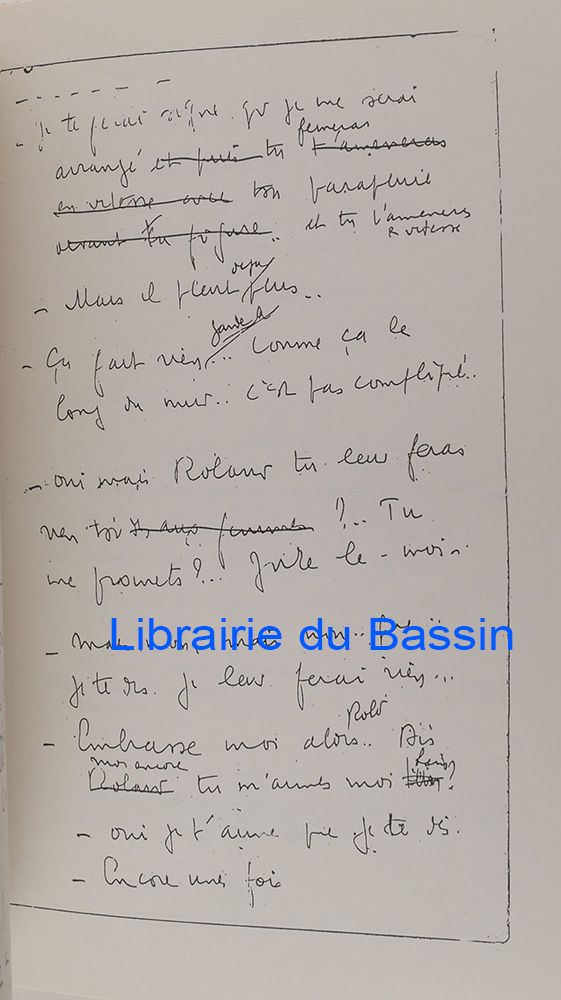 - - - - - -
- Je te ferai signe qd je me serai
fermeras
arrangé et puis tu t'amèneras
en vitesse avec ton parapluie
devant ta figure.. et tu t'amèneras
en vitesse
- Mais il pleut plus..
- Ça fait rien... Comme ça le
long du mur.. c'est pas compliqué..
- oui mais Roland tu leur feras
rien toi aux femmes ?.. Tu
me promets ?... Jure le - moi.
Librairie du Bassin
- mais non, mais non..
je te dis. je leur ferai rien...
- Embrasse moi alors.. Dis
moi encore
Roland tu m'aimes moi ?
- oui je t'aime que je te dis.
- Encore une fois